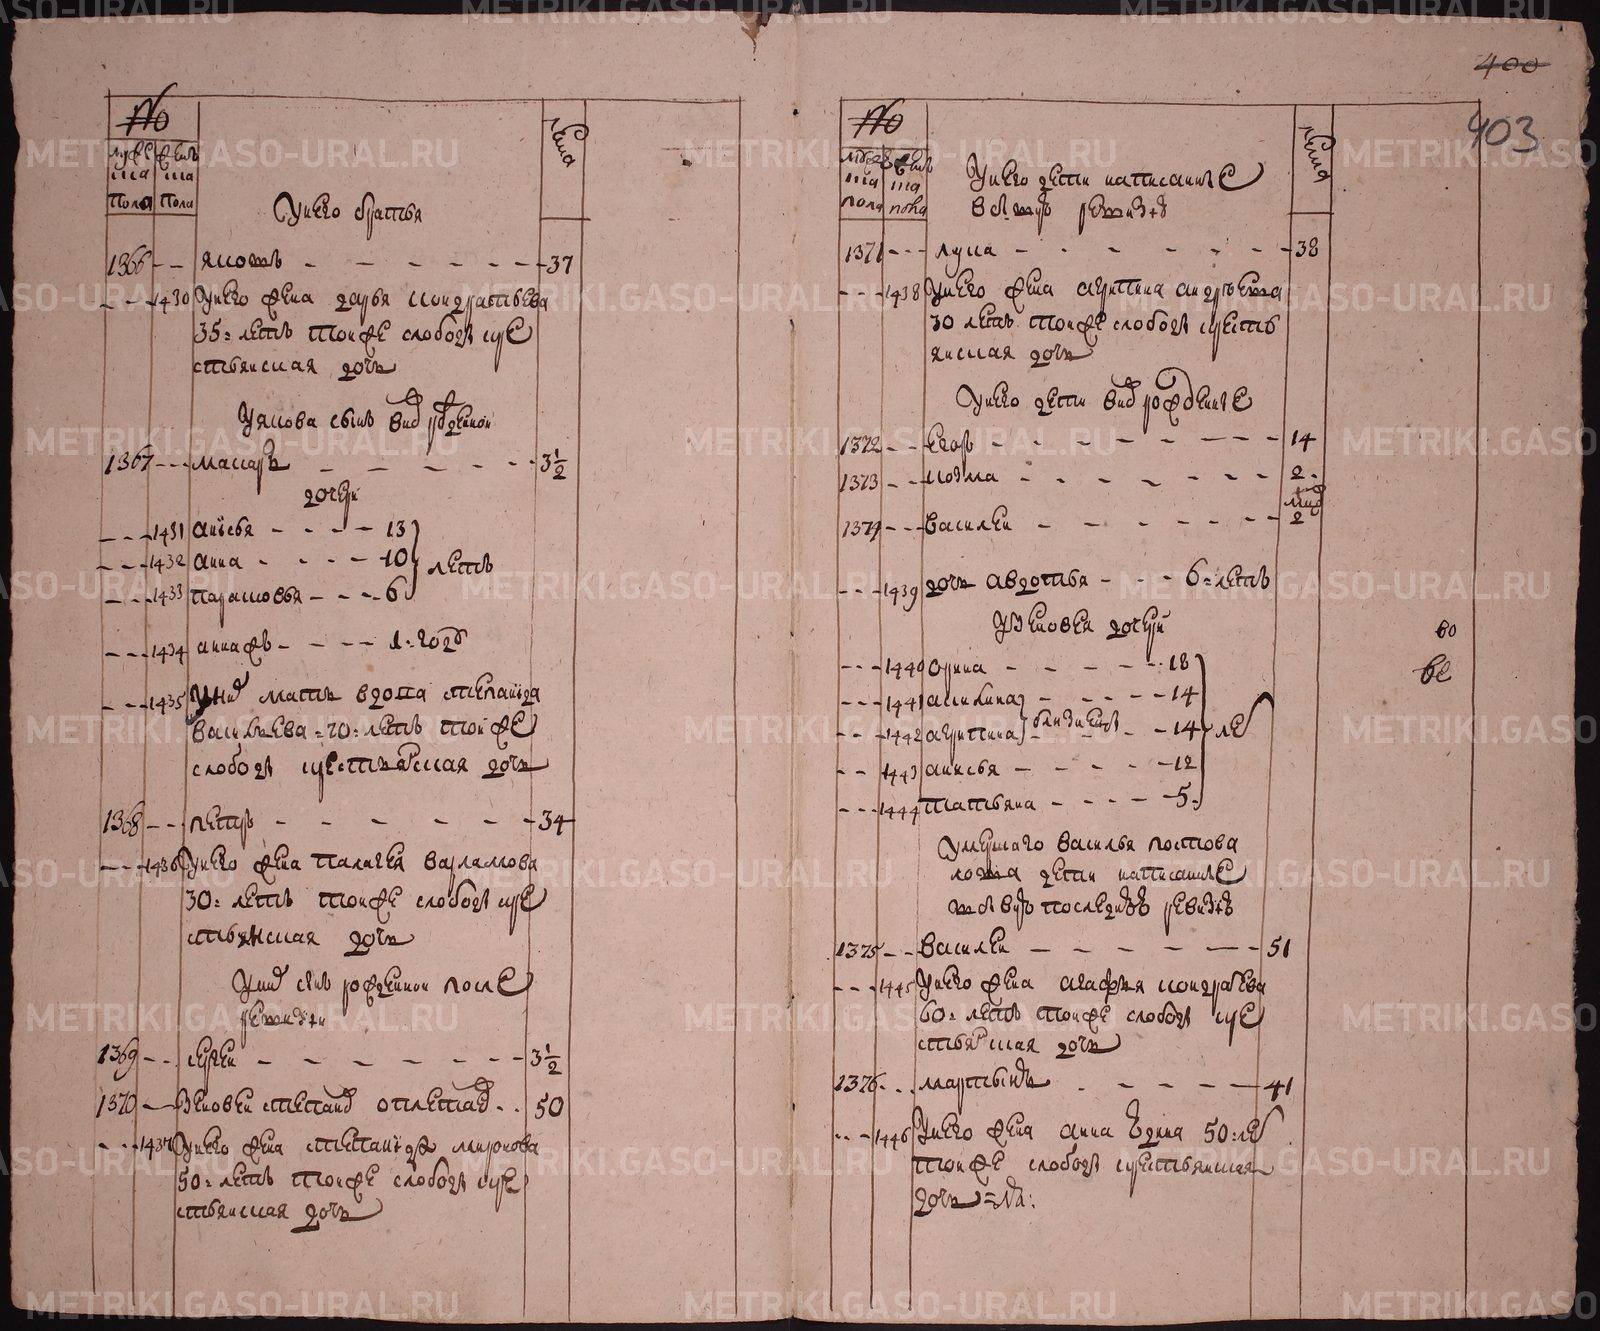 400
403
№
мужеска пола
женска пола
лета
У него братья
1366 - - яковъ - - - - - - - 37
- - - 1430 У него жена дарья кондратьева
35: летъ тои же слободы кре
стьянская дочь
У якова сынъ
1367 - - - макаръ - - - - - 3½
дочери
- - - 1431 анисья - - - - 13
- - - 1432 анна - - - - 10 летъ
- - - 1433 парасковья - - - 6
- - - 1434 - - - - 1: годъ
- - - 1435 У них мать вдова степанида
васильева = 70: летъ тои же
слободы крестьянская дочь
1368 - - - петръ - - - - - - 34
- - - 1436 У него жена палагея варламова
30: летъ тои же слободы кре
стьянская дочь
У них сынъ рожденнои после
ревизии
1369 - - - сергеи - - - - - - 3½
1370 - - зеновеи степанов - - 50
- - - 1437 У него жена степанида миронова
50: летъ тои же слободы кре
стьянская дочь
№
мужеска пола
женска пола
лета
У него дети написанные
в ревизию
1371 - - - лука - - - - - - - 38
- - - 1438 У него жена агрипина андреева
30 летъ тои же слободы кресть
янская дочь
У него дети вновь рожденные
1372 - - егоръ - - - - - - - 14
1373 - - козма - - - - - - - 2
1374 - - - василеи - - - - - - 2
- - - 1439 дочь авдотья - - - 6: летъ
У зеновея дочери
- - - 1440 орина - - - - - 18
- - - 1441 акилина - - - - - 14
- - - 1442 агрипина близнецы - - 14 ле
- - - 1443 анисья - - - - - 12
- - - 1444 татьяна - - - - 5
во
ве
Умершаго василья
дети написанные
последнюю ревизию
1375 - - василеи - - - - - - 51
- - - 1445 У него жена агафья кондратьева
60: летъ тои же слободы кре
стьянская дочь
1376 - - мартынъ - - - - - 41
- - - 1446 У него жена анна 50: ле
тои же слободы крестьянская
дочь
METRIKI.GASO-URAL.RU